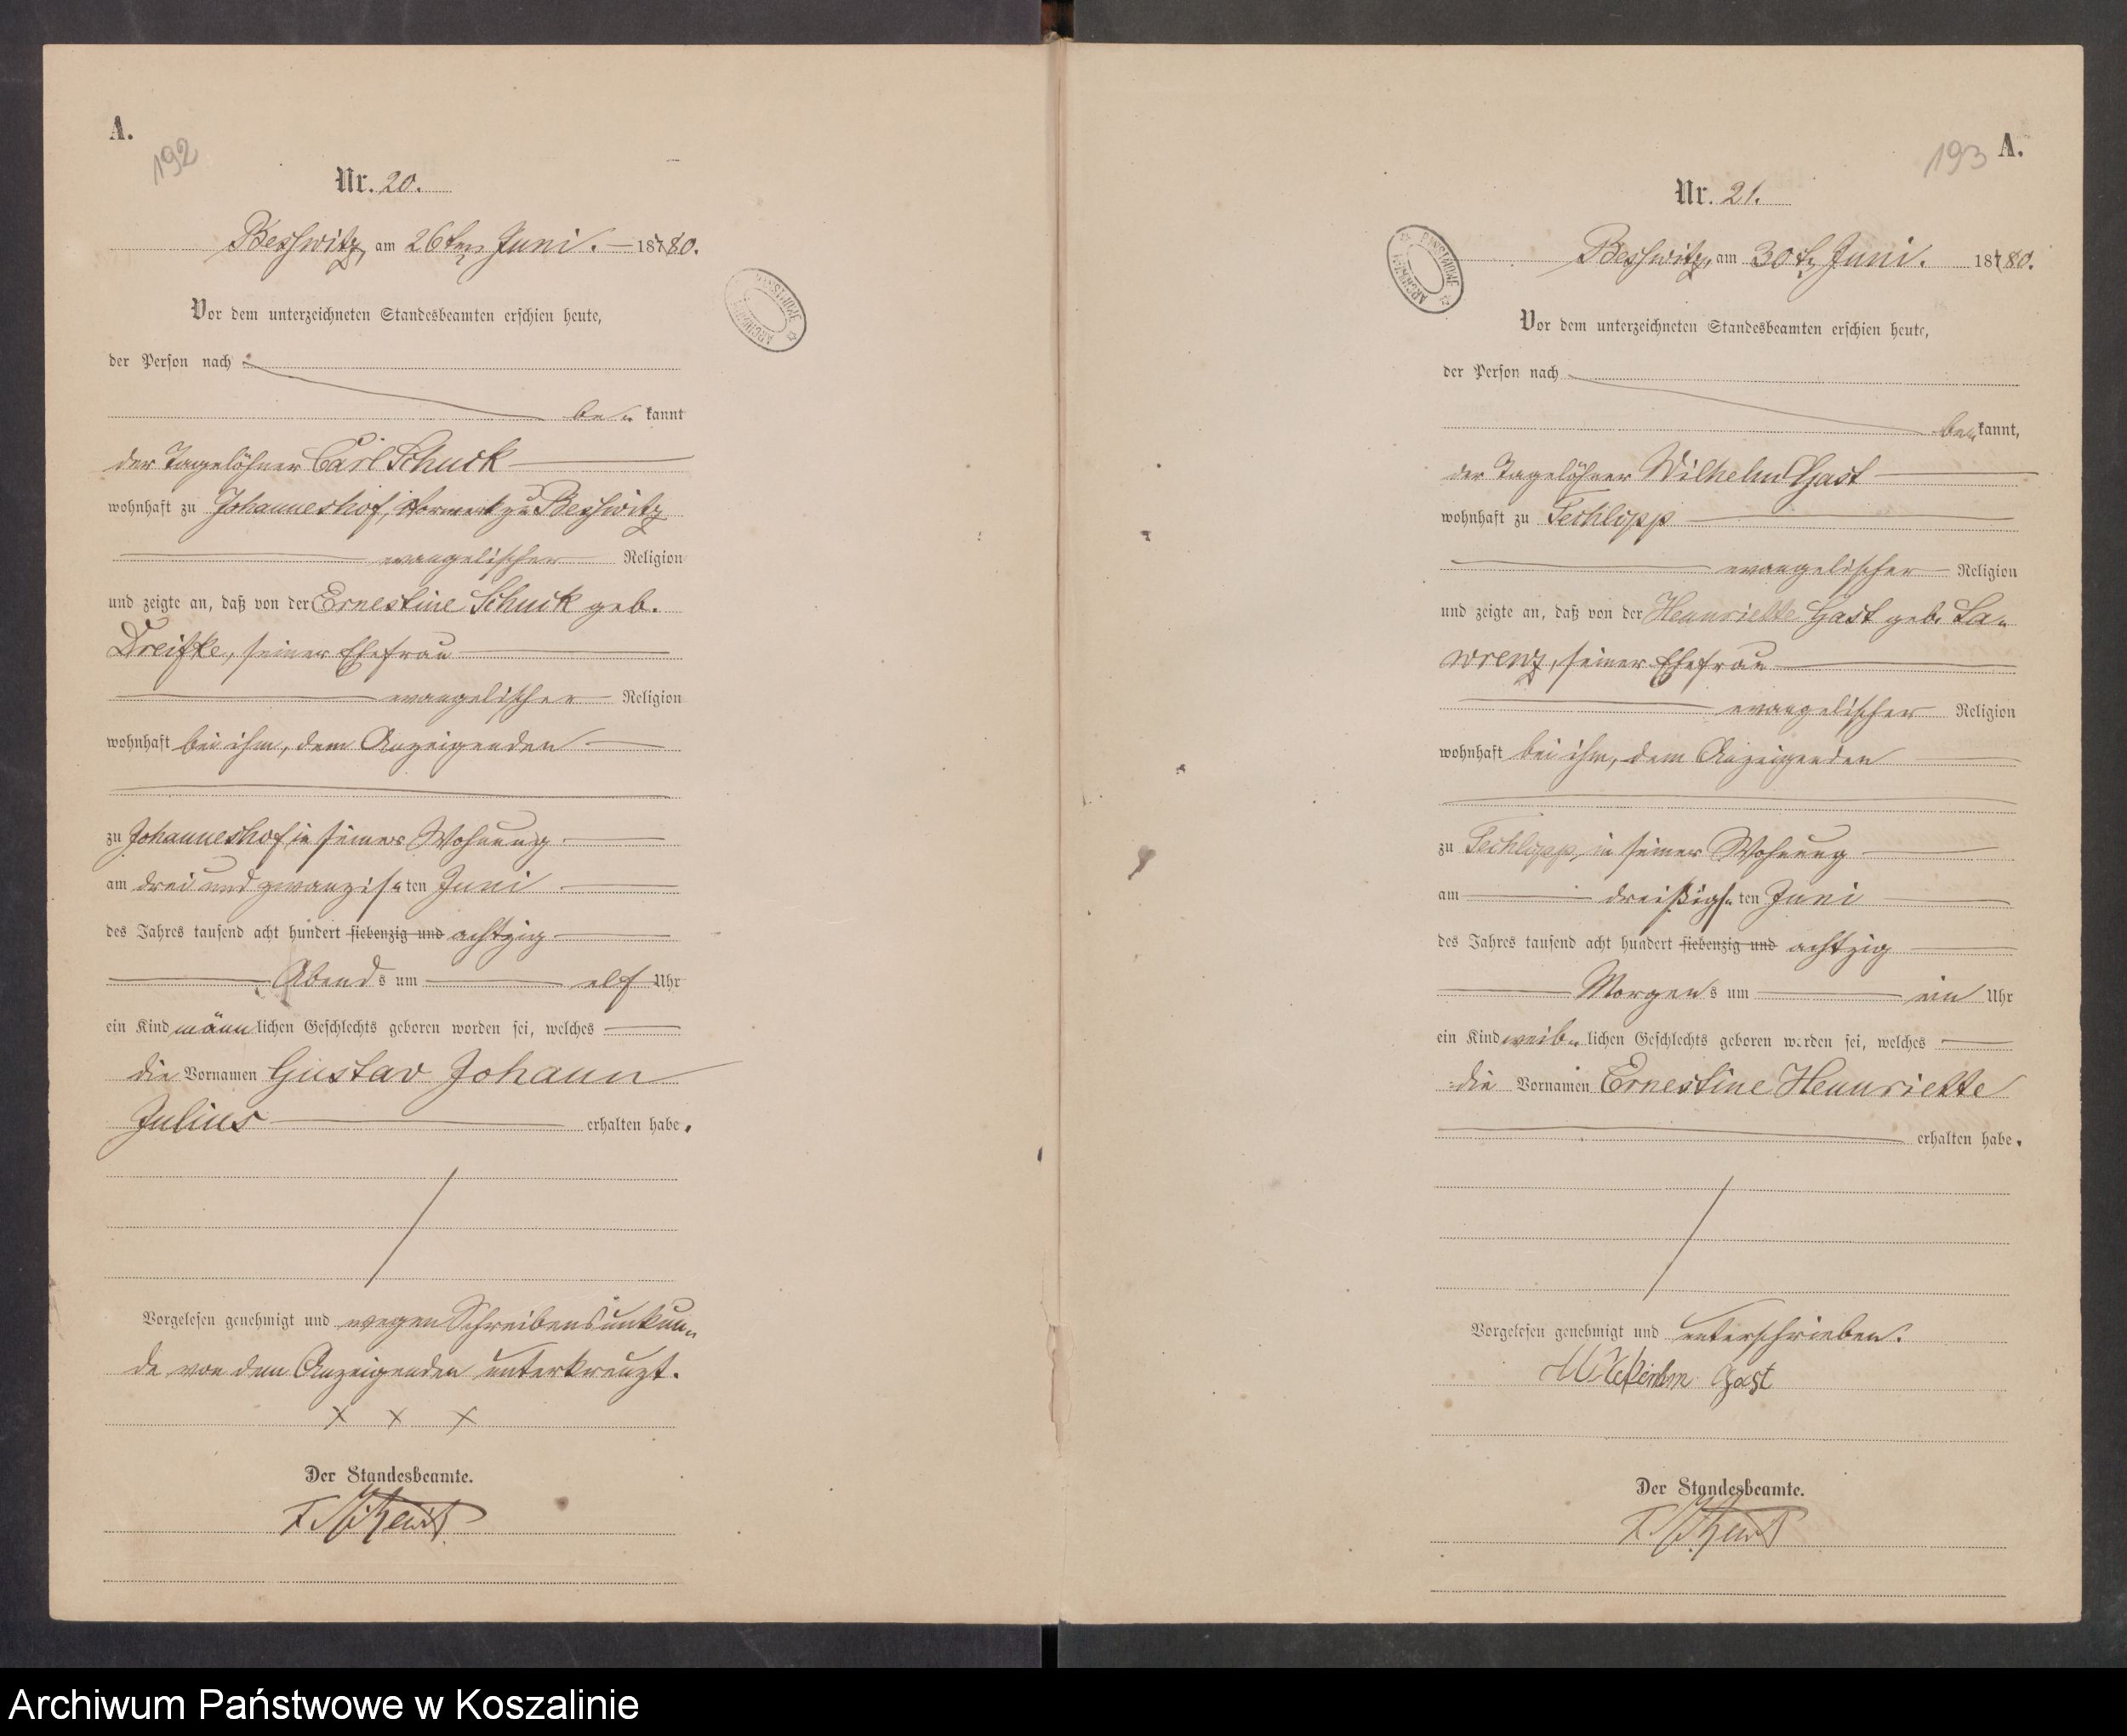 A.
192
Nr. 20.
Besswitz, am 26ten Juni. 18780.
Vor dem unterzeichneten Standesbeamten erschien heute,
der Person nach
be= kannt
der Tagelöhner Carl Schuck
wohnhaft zu Johanneshof, Vorwerk zu Besswitz
evangelischer Religion
und zeigte an, daß von der Ernestine Schuck geb.
Dreifke, seiner Ehefrau
evangelischer Religion
wohnhaft bei ihm, dem Anzeigenden
zu Johanneshof in seiner Wohnung
am drei und zwanzigs= ten Juni
des Jahres tausend acht hundert siebenzig und achtzig
Abends um elf Uhr
ein Kind männlichen Geschlechts geboren worden sei, welches
die Vornamen Gustav Johann
Julius erhalten habe.
Vorgelesen genehmigt und wegen Schreibensunkun=
de von dem Anzeigenden unterkreuzt.
x x x
Der Standesbeamte.
A.
193
Nr. 21.
ARCHIWUM PAŃSTWOWE
Besswitz, am 30t Juni. 18780.
Vor dem unterzeichneten Standesbeamten erschien heute,
der Person nach
be= kannt,
der Tagelöhner Wilhelm Gast
wohnhaft zu Techlipp
evangelischer Religion
und zeigte an, daß von der Hennriette Gast geb. La=
wrenz, seiner Ehefrau
evangelischer Religion
wohnhaft bei ihm, dem Anzeigenden
zu Techlipp, in seiner Wohnung
am dreißigs= ten Juni
des Jahres tausend acht hundert siebenzig und achtzig
Morgens um ein Uhr
ein Kind weib= lichen Geschlechts geboren worden sei, welches
die Vornamen Ernestine Hennriette
erhalten habe.
Vorgelesen genehmigt und unterschrieben.
Wilhelm Gast
Der Standesbeamte.
Archiwum Państwowe w Koszalinie